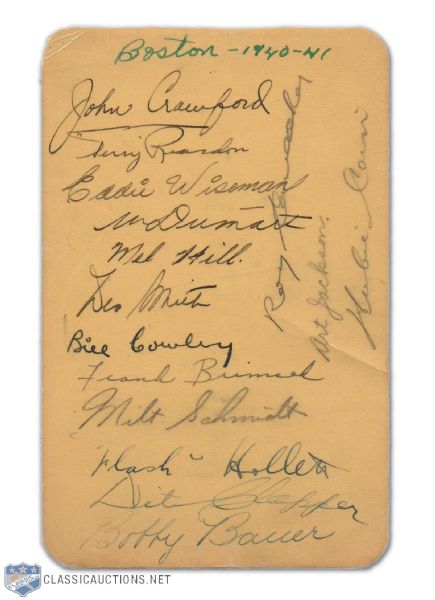 Boston - 1940-41
John Crawford
"Terry Reardon
Eddie Wiseman
W Dumart
Mel Hill.
Des Smith
Bill Cowley
Frank Brimsek
Milt Schmidt
"Flash" Hollett
Dit Clapper
Bobby Bauer
Roy
Art Jackson.
Herbie Cain
CLASSICAUCTIONS.NET